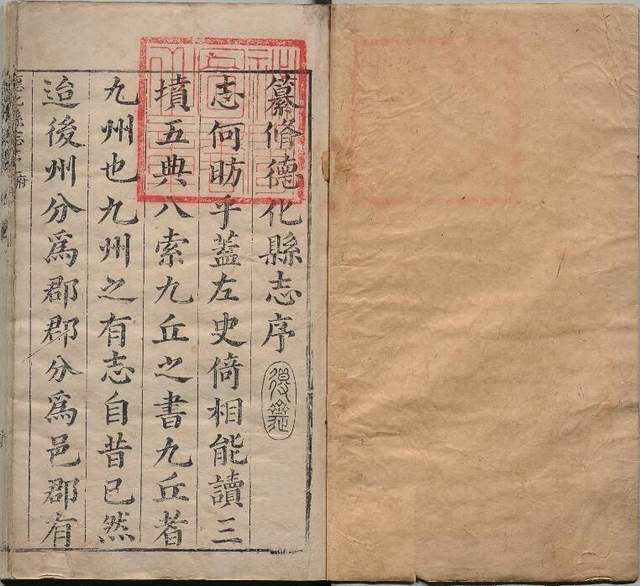 纂脩德化縣志序
志何昉乎蓋左史倚相能讀三
墳五典八索九丘之書九丘者
九州也九州之有志自昔已然
迨後州分爲郡郡分爲邑郡有